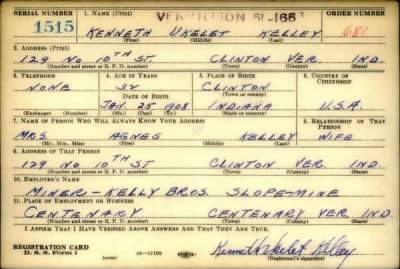 SERIAL NUMBER 1. NAME (Print) VERMILLION 51-165 ORDER NUMBER
1515 KENNETH UKELET KELLEY 681
(First) (Middle) (Last)
2. ADDRESS (Print)
129 No 10TH ST. CLINTON VER. IND.
(Number and street or R. F. D. number) (Town) (County) (State)
3. TELEPHONE 4. AGE IN YEARS 5. PLACE OF BIRTH 6. COUNTRY OF CITIZENSHIP
NONE 32 CLINTON
DATE OF BIRTH (Town or county)
JAN. 25 1908 INDIANA U.S.A.
(Exchange) (Number) (Mo.) (Day) (Yr.) (State or country)
7. NAME OF PERSON WHO WILL ALWAYS KNOW YOUR ADDRESS 8. RELATIONSHIP OF THAT PERSON
MRS. AGNES KELLEY WIFE
(Mr., Mrs., Miss) (First) (Middle) (Last)
9. ADDRESS OF THAT PERSON
129 No 10TH ST CLINTON VER. IND.
(Number and street or R. F. D. number) (Town) (County) (State)
10. EMPLOYER'S NAME
MINER - KELLY BROS. SLOPE-MINE
11. PLACE OF EMPLOYMENT OR BUSINESS
CENTENARY CENTENARY VER. IND.
(Number and street or R. F. D. number) (Town) (County) (State)
I AFFIRM THAT I HAVE VERIFIED ABOVE ANSWERS AND THAT THEY ARE TRUE.
REGISTRATION CARD
D. S. S. Form 1 16-17105 Kenneth Ukelet Kelley
(Registrant's signature)